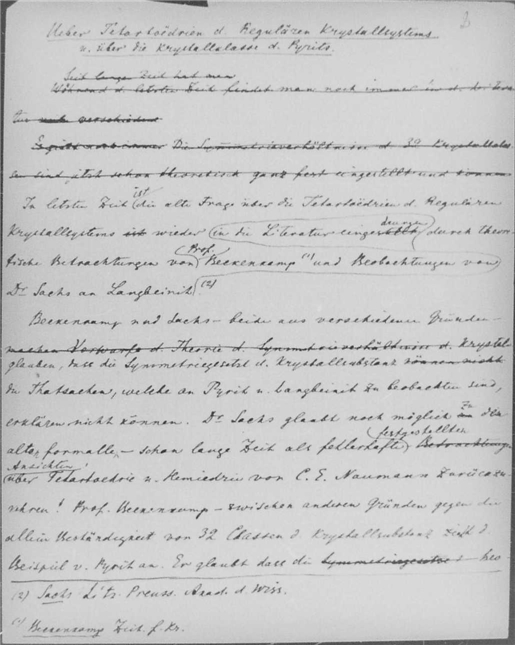 Ueber Tetartoëdrien d. Regulären Krystallsystems
u. über die Krystallclasse d. Pyrits.
Seit langer Zeit hat man
Während d. letzten Zeit findet man noch immer in d.
verschiedene
Die Symmetrieverhältnisse d. 32 Krystallclas
sen sind jetzt schon theoretisch ganz fest eingestellt und
In letzter Zeit ist die alte Frage über die Tetartoëdrien d. Regulären
Krystallsystems ist wieder in die Literatur eingedrungen durch theore-
tische Betrachtungen von Prof. Beckenkamp (1) und Beobachtungen von
Dr Sachs an Langbeinit. (2)
Beckenkamp und Sachs – beide aus verschiedenen Gründen –
machen Vorwürfe d. Theorie d. Symmetrieverhältnissen d. Krystal
glauben, dass die Symmetriegesetze d. Krystallsubstanz können nicht
die Thatsachen, welche an Pyrit u. Langbeinit zu beobachten sind,
erklären nicht können. Dr Sachs glaubt noch möglich zu die
alte, formelle, – schon lange Zeit als fehlerhafte festgestellten
Ansichten
über Tetartoedrie u. Hemiedrie von C. E. Naumann zurückzu-
kehren! Prof. Beckenkamp – zwischen anderen Gründen gegen die
allein Beständigkeit von 32 Classen d. Krystallsubstanz zieht d.
Beispiel v. Pyrit an. Er glaubt dass die Symmetriegesetze d. beo-
(2) Sachs Sits. Preuss. Acad. d. Wiss.
(1) Beckenkamp Zeit. f. Kr.